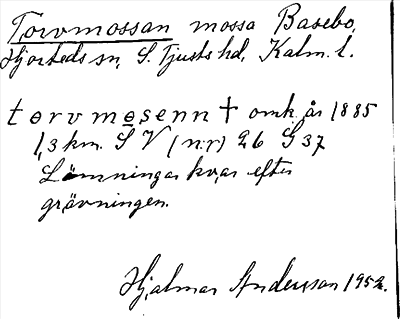 Torvmossan mossa Basebo,
Hjorteds sn, S. Tjusts hd, Kalm. l.
torvmosenn † omk. år 1885
1,3 km. S V (nr) 26 G 37
Lämningar kvar efter
grävningen.
Hjalmar Andersson 1952.